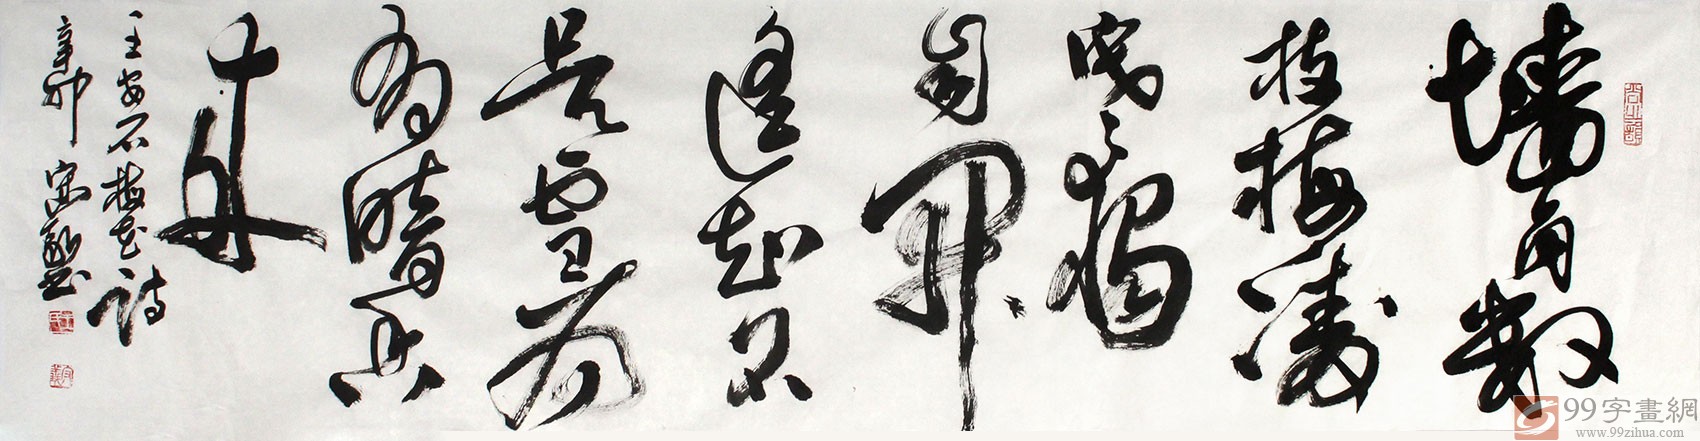 墙角数
枝梅凌
寒独
自開
遥知不
是雪为
有暗香
来
王安石梅花诗
辛卯
99字畫網
www.99zihua.com